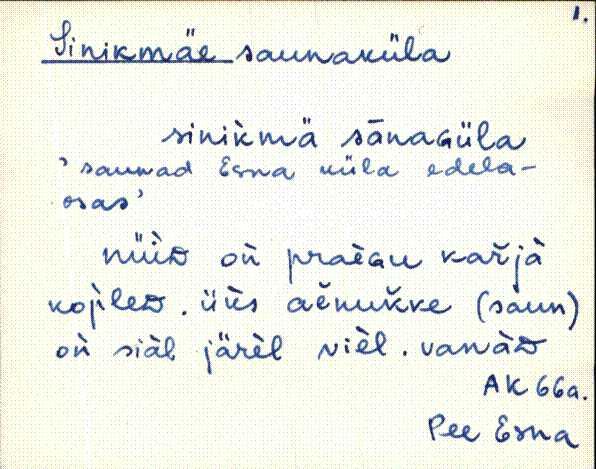 1.
Sinikmäe saunaküla
sinik̀mä sānaɢüla
'saunad Esna küla edela-
osas'
nüìᴅ oǹ praèɢu kařjà
kop̀leᴅ. üìs aěnuk̆ke (saun)
oǹ siàl järèl vièl. vanàᴅ
AK 66a.
Pee Esna